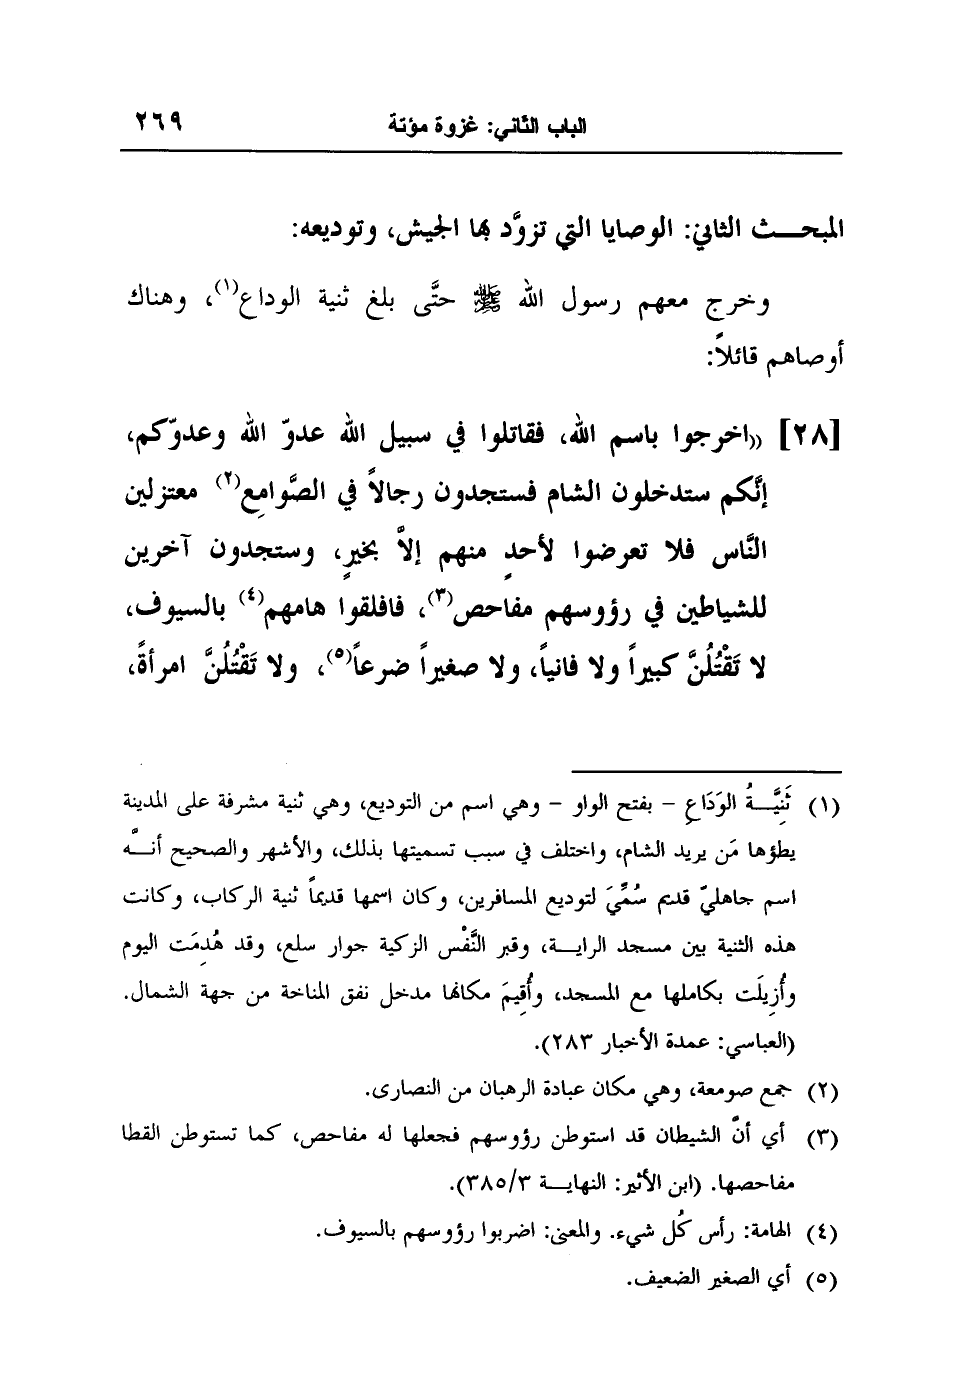 الباب الثاني: غزوة مؤتة ٢٦٩
المبحـــث الثاني: الوصايا التي تزوَّد بها الجيش، وتوديعه:
وخرج معهم رسول الله ﷺ حتَّى بلغ ثنية الوداع(١)، وهناك
أوصاهم قائلاً:
[٢٨] «اخرجوا باسم الله، فقاتلوا في سبيل الله عدوّ الله وعدوّكم،
إنَّكم ستدخلون الشام فستجدون رجالاً في الصَّوامِع(٢) معتزلين
النَّاس فلا تعرضوا لأحدٍ منهم إلاَّ بخيرٍ، وستجدون آخرين
للشياطين في رؤوسهم مفاحص(٣)، فافلقوا هامهم(٤) بالسيوف،
لا تَقْتُلُنَّ كبيراً ولا فانياً، ولا صغيراً ضرعاً(٥)، ولا تَقْتُلُنَّ امرأةً،
(١) ثَنِيَّـــةُ الوَدَاعِ – بفتح الواو – وهي اسم من التوديع، وهي ثنية مشرفة على المدينة
يطؤها مَن يريد الشام، واختلف في سبب تسميتها بذلك، والأشهر والصحيح أنــه
اسم جاهليّ قديم سُمِّيَ لتوديع المسافرين، وكان اسمها قديماً ثنية الركاب، وكانت
هذه الثنية بين مسجد الرايـــة، وقبر النَّفْس الزكية جوار سلع، وقد هُدِمَت اليوم
وأُزِيلَت بكاملها مع المسجد، وأُقِيمَ مكانها مدخل نفق المناخة من جهة الشمال.
(العباسي: عمدة الأخبار ٢٨٣).
(٢) جمع صومعة، وهي مكان عبادة الرهبان من النصارى.
(٣) أي أنَّ الشيطان قد استوطن رؤوسهم فجعلها له مفاحص، كما تستوطن القطا
مفاحصها. (ابن الأثير: النهايـــة ٣٨٥/٣).
(٤) الهامة: رأس كُل شيء. والمعنى: اضربوا رؤوسهم بالسيوف.
(٥) أي الصغير الضعيف.